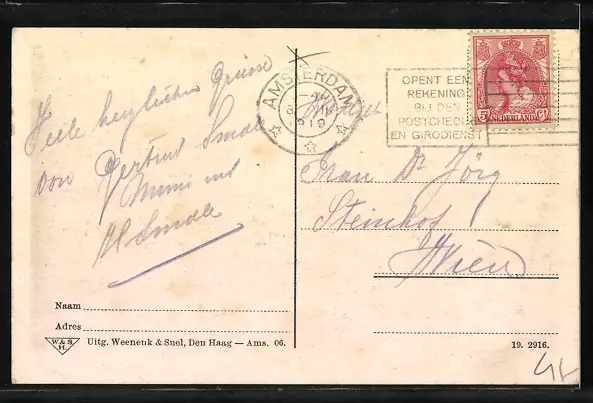 Viele herzlichen Grüsse
von Gertrud Smale
Mimi und
M Smale
Naam
Adres
W. & S.
H.
Uitg. Weenenk & Snel, Den Haag — Ams. 06.
AMSTERDAM
OPENT EEN
REKENING
BIJ DEN
POSTCHEQUE
EN GIRODIENST
5 NEDERLAND Ct
Frau Dr Jörg
Steinhof
Wien
19. 2916.